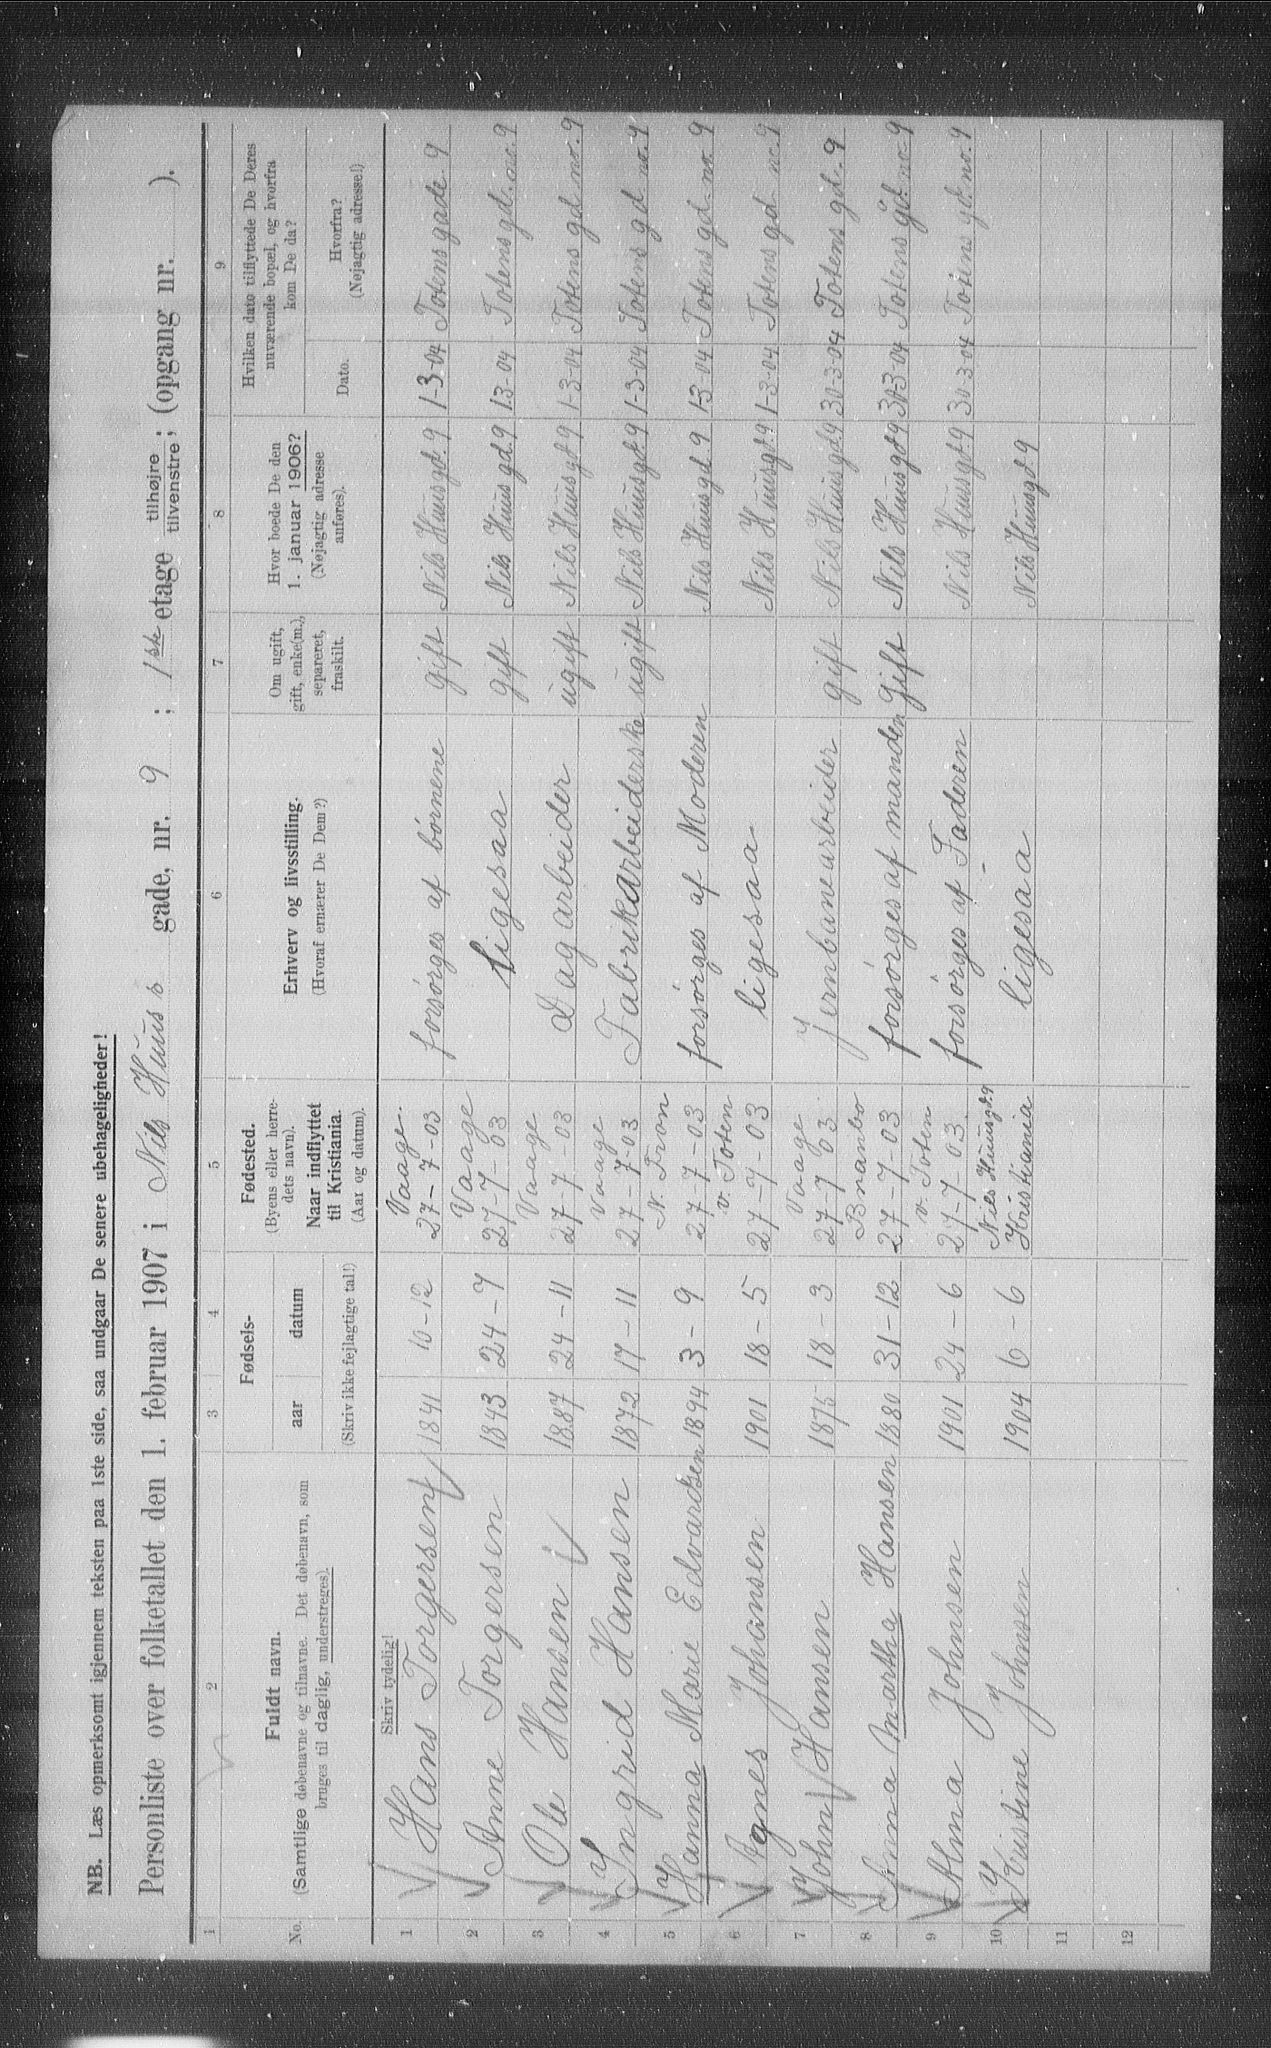 NB. Læs opmerksomt igjennem teksten paa 1ste side, saa undgaar De senere ubehageligheder!
Personliste over folketallet den 1. februar 1907 i Nils Huus's gade, nr. 9 ; 1ste etage tilhøjre tilvenstre ; (opgang nr. ).
1 2 3 4 5 6 7 8 9
No.
Fuldt navn.
(Samtlige døbenavne og tilnavne. Det døbenavn, som
bruges til daglig, understreges).
Fødsels-
aar datum
(Skriv ikke fejlagtige tal!)
Fødested.
(Byens eller herre-
dets navn).
Naar indflyttet
til Kristiania.
(Aar og datum).
Erhverv og livsstilling.
(Hvoraf ernærer De Dem?)
Om ugift,
gift, enke(m.),
separeret,
fraskilt.
Hvor boede De den
1. januar 1906?
(Nøjagtig adresse
anføres).
Hvilken dato tilflyttede De Deres
nuværende bopæl, og hvorfra
kom De da?
Dato.
Hvorfra?
(Nøjagtig adresse!)
Skriv tydelig!
1 Hans Torgersen 1841 10-12 Vaage. 27-7-03 forsørges af børnene gift Nils Huusgd. 9 1-3-04 Totensgade. 9
2 Anne Torgersen 1843 24-7 Vaage 27-7-03 ligesaa gift Nils Huusgd. 9 1-3-04 Totensgd. no. 9
3 Ole Hansen 1887 24-11 Vaage 27-7-03 Dagarbeider ugift Nils Huusgd 9 1-3-04 Totensgd no. 9
4 Ingrid Hansen 1872 17-11 Vaage 27-7-03 Fabrikarbeiderske ugift Nils Huusgd 9 1-3-04 Totensgd no. 9
5 Hanna Marie Edvardsen 1894 3-9 N. Fron 27-7-03 forsørges af Moderen Nils Huusgd. 9 1-3-04 Totensgd. no. 9
6 Agnes Johansen 1901 18-5 v. Toten 27-7-03 ligesaa Nils Huusgd. 9 1-3-04 Totensgd no. 9
7 John Hansen 1875 18-3 Vaage 27-7 03 Jernbanearbeider gift Nils Huusgd. 9 30-3-04 Totensgd. 9
8 Anna Martha Hansen 1880 31-12 Branbo 27-7-03 forsørges af manden gift Nils Huusgd 9 30-3-04 Totensgd. no. 9
9 Alma Johnsen 1901 24-6 v. Toten 27-7-03 forsørges af Faderen Nils Huusgd. 9 30-3-04 Totensgd. no. 9
10 Kristine Johnsen 1904 6-6 Nils Huusgd. 9 Kristiania ligesaa Nils Huusgd 9
11
12